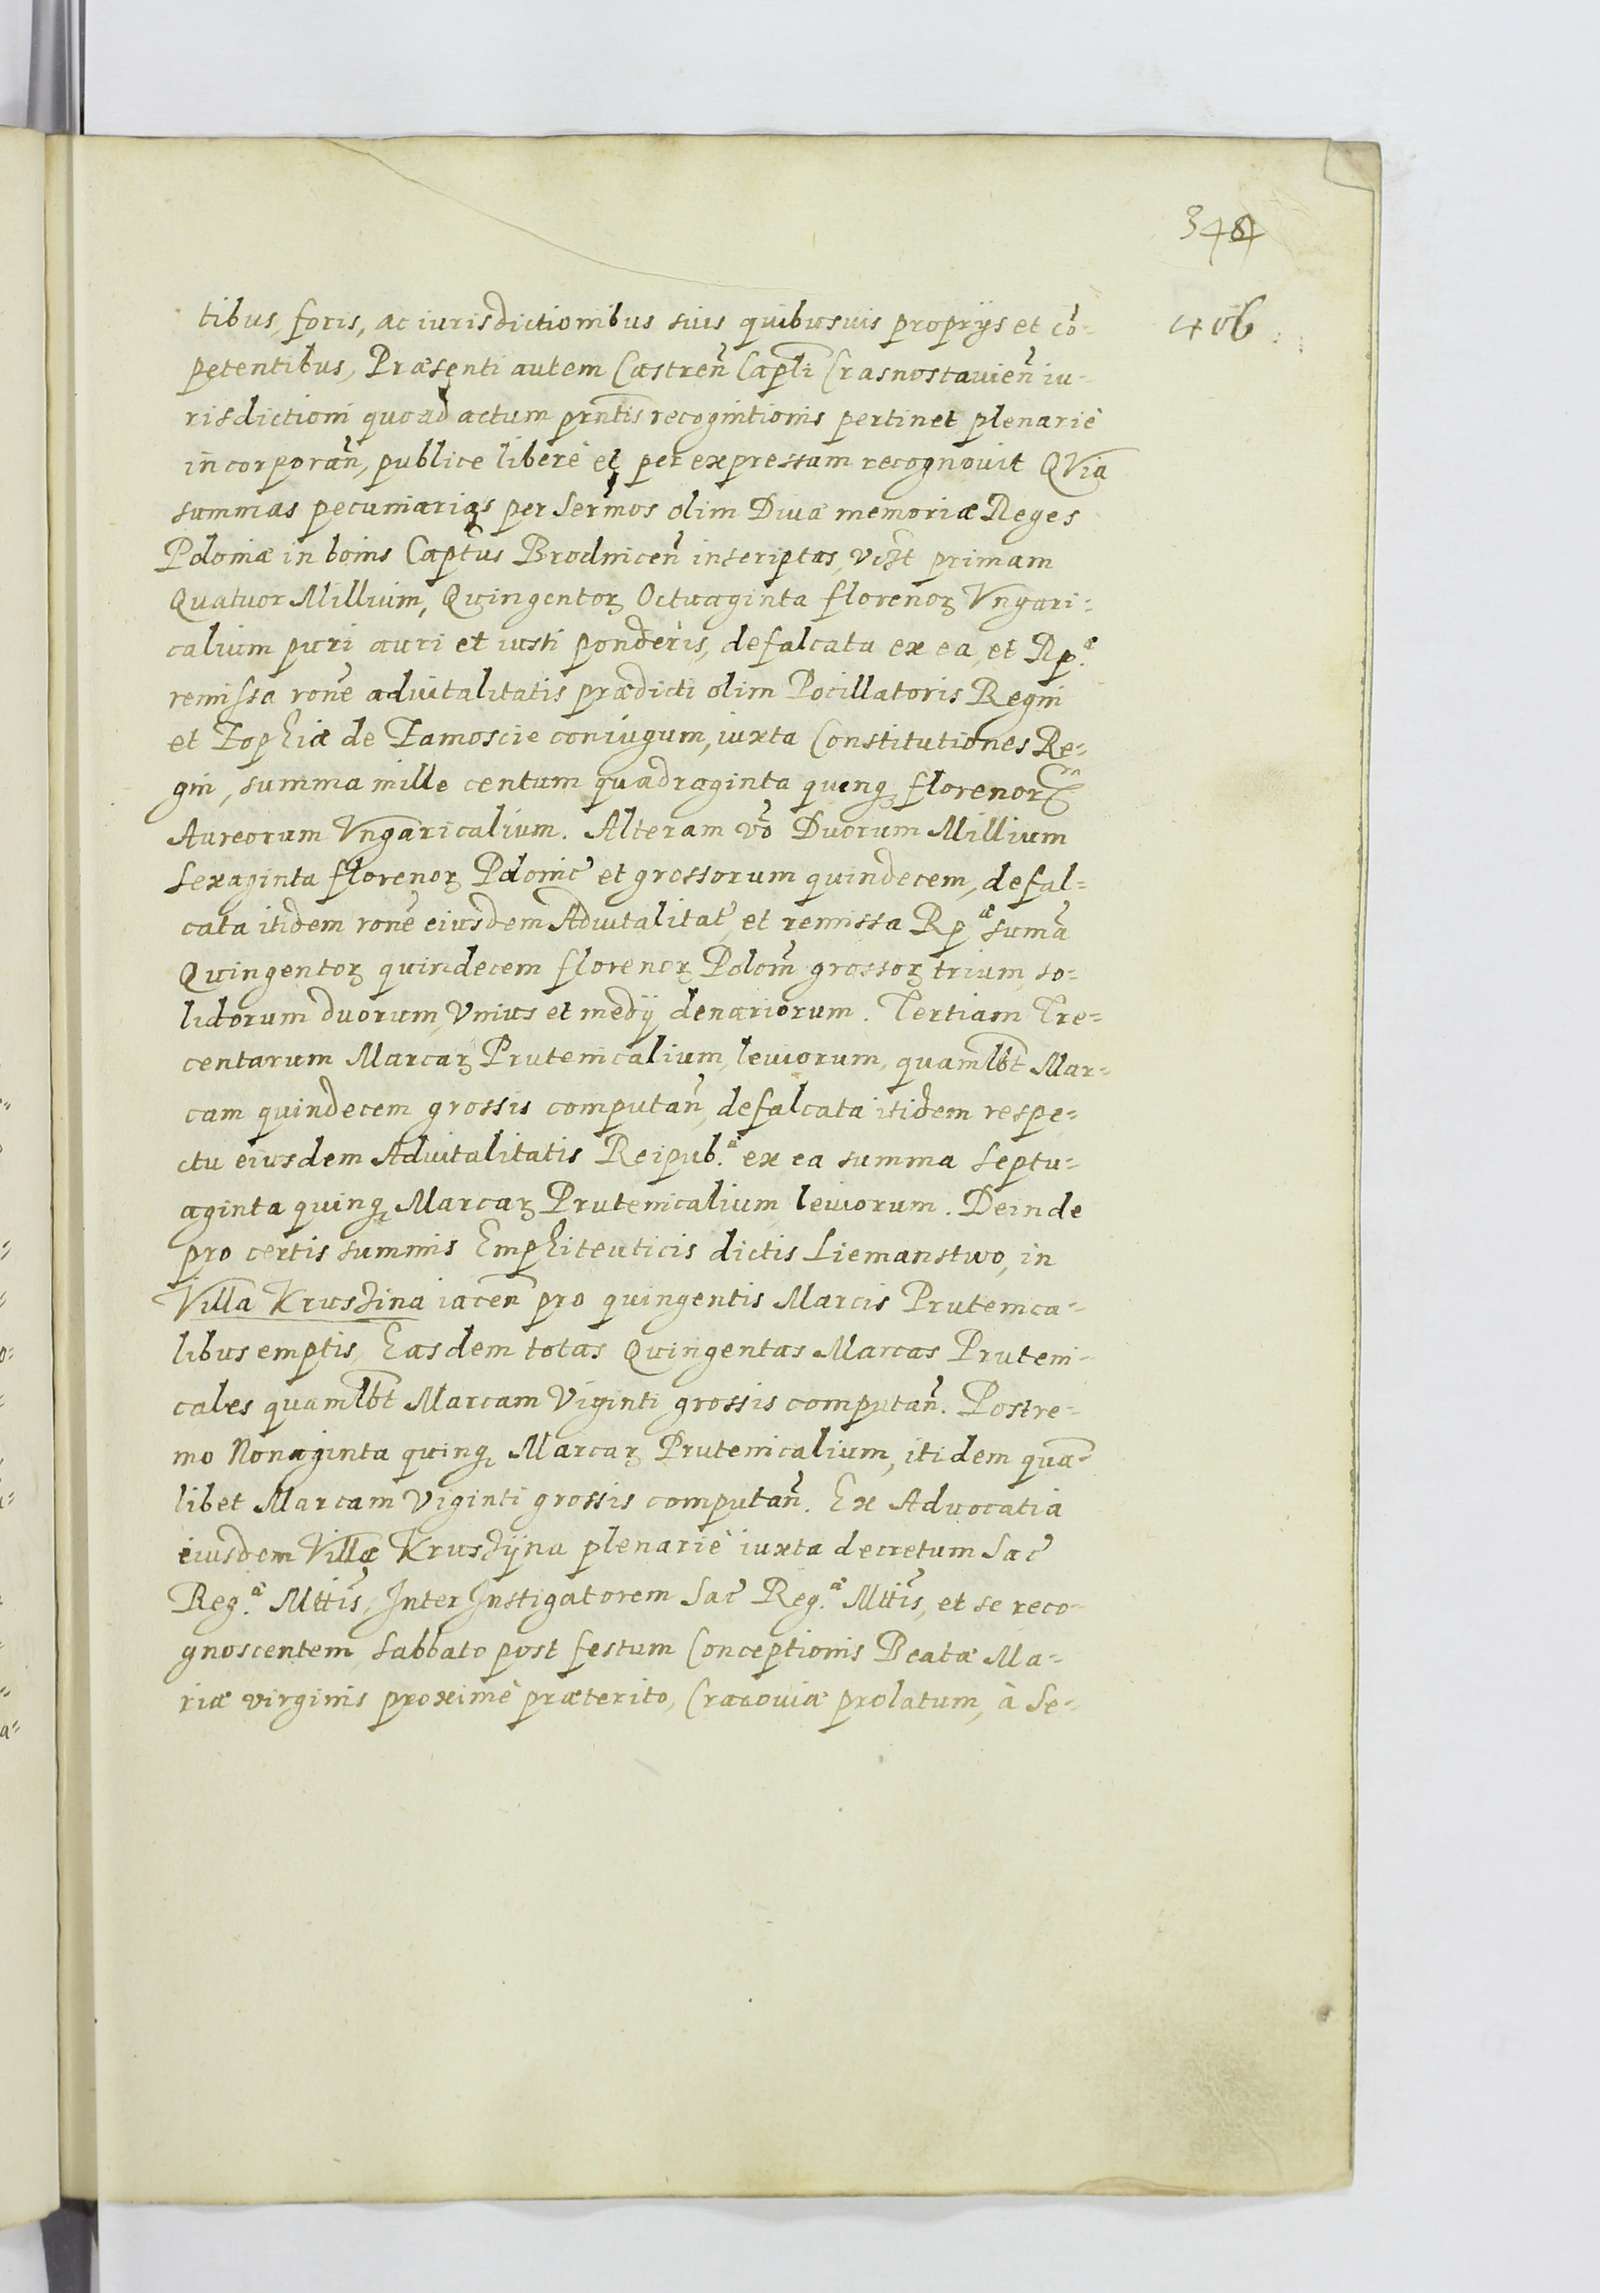 348
406
tibus, foris, ac iurisdictionibus suis quibusuis proprijs et cõ-
petentibus, Præsenti autem Castreñ Capłi Crasnostauieñ iu-
risdictioni quoad actum prñtis recognitionis pertinet plenariè
incorporañ, publice liberè et per expressam recognouit QVia
summas pecuniarias per Sermos olim Diuæ memoriæ Reges
Poloniæ in bonis Capťus Brodniceñ inscriptas, vczt primam
Quatuor Millium, Quingentoꝝ Octuaginta florenoꝝ Vngari-
calium puri auri et iusti ponderis, defalcata ex ea, et Rp.ᵃ
remissa rone aduitalitatis prædicti olim Pocillatoris Regni
et Zophiæ de Zamoscie coniugum, iuxta Constitutiones Re-
gni, summa mille centum quadraginta quinqꝫ florenoꝝ
Aureorum Vngaricalium. Alteram võ Duorum Millium
Sexaginta florenoꝝ Polonic̃ et grossorum quindecem, defal-
cata itidem rone eiusdem Aduitalitat̃, et remissa Rpᵃ sum̃a
Quingentoꝝ quindecem florenoꝝ Poloñ grossoꝝ trium, so-
lidorum duorum, Vnius et medij denariorum. Tertiam Tre-
centarum Marcaꝝ Prutenicalium, leuiorum, quamlbt Mar-
cam quindecem grossis computañ, defalcata itidem respe-
ctu eiusdem Aduitalitatis Reipub.ᵃ ex ea summa Septu-
aginta quinqꝫ Marcaꝝ Prutenicalium leuiorum. Deinde
pro certis summis Emphiteuticis dictis Liemanstwo, in
Villa Kruszina iaceñ pro quingentis Marcis Prutenica-
libus emptis, Easdem totas Quingentas Marcas Pruteni-
cales quamlbt Marcam Viginti grossis computañ. Postre-
mo Nonaginta quinqꝫ Marcaꝝ Prutenicalium, itidem quã-
libet Marcam Viginti grossis computañ. Ex Aduocatia
eiusdem Villæ Kruszijna plenariè iuxta decretum Sac̃
Reg.ᵃ Mttis, Inter Instigatorem Sac̃ Reg.ᵃ Mttis, et se reco-
gnoscentem, Sabbato post festum Conceptionis Beatæ Ma-
riæ virginis proximè præterito, Cracouiæ prolatum, à Se-